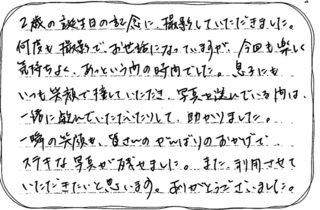 2歳の誕生日の記念に、撮影していただきました。
何度も撮影でお世話になっていますが、今回も楽しく
気持ちよく、あっという間の時間でした。息子にも
いつも笑顔で接していただき、写真を選んでいる間は、
一緒に遊んでいただいたりして、助かりました。
一瞬の笑顔も、皆さんのがんばりのおかげで
ステキな写真が残せました。また、利用させて
いただきたいと思います。ありがとうございました。